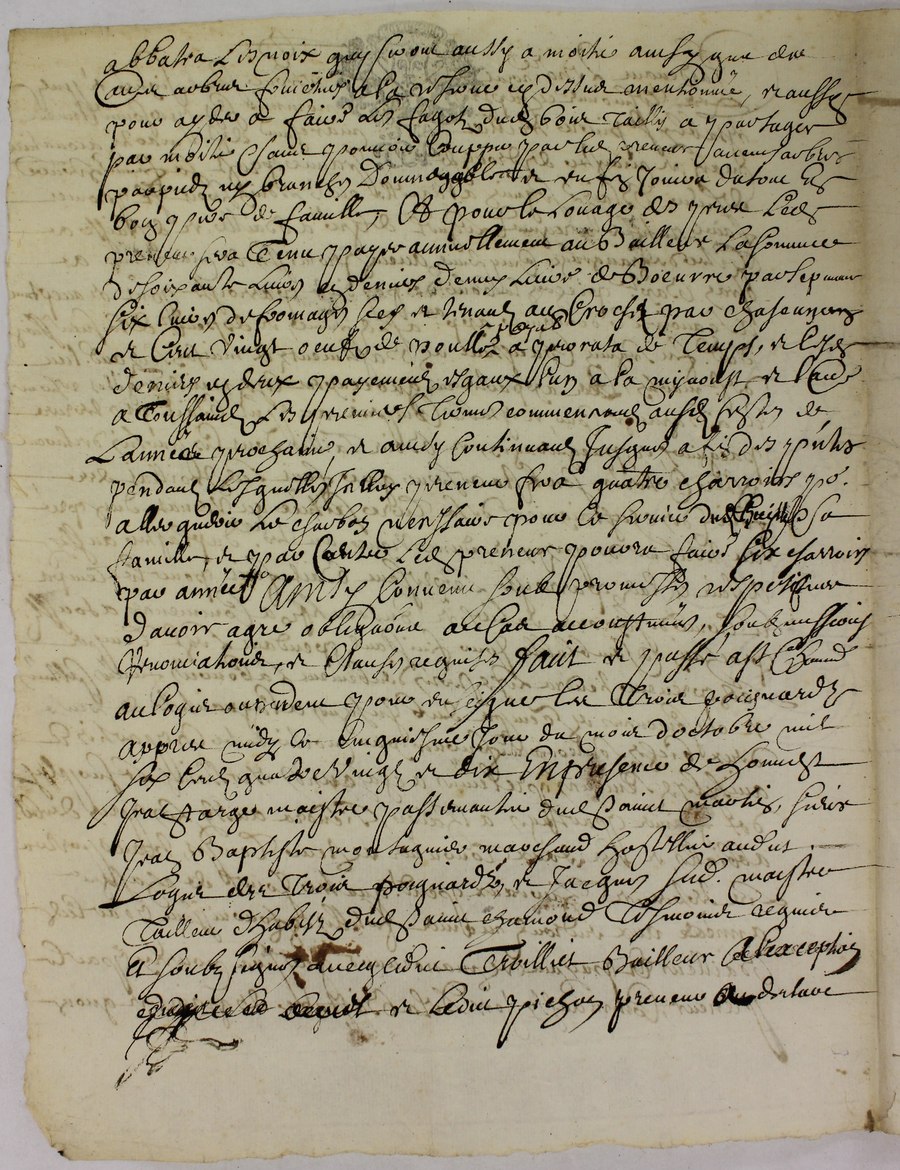 abbatra les noix quy seront aussy a moitié ainsy que des
autres arbres fruictiers a la reserve cy dessus mentionnée, et aussy
pour ayder a faire les fagotz dud. bois tailly a partager
par moitié sans pouvoir coupper par led. preneur aucuns arbres
par pied ny branches dommageables et en fin jouira du tout en
bon pere de famille, Et pour le louage des pris led.
preneur sera tenu payer annuellement au Bailleur la somme
de soixante livres en deniers demy livre de Boeurre par sepmaine
six livres de fromages secz et venant au Croché par chascun
et Cent vingt oeufz de poulle a prorata de temps, et lesd.
deniers en deux payements esgaux l'un a la my aoust et l'autre
a Toussainct les premiers termes commenceant ausd. festes de
L'année prochaine, et ainsy continuant jusques a fin des
pendant lesquelles icelluy preneur fera quatre charrois po.
aller querir le charbon necessaire pour le service dud. Bailleur et sa
famille, et par contre led. preneur pourra faire six charrois
par année Ainsy convenu soubz promesses respectives
d'avoir agré obligaõns accoustumées, soubzmissions
Renonciations, et clauses requises faict et passé a St Chamond
au logis ou pendent pour enseigne les Trois poignardz
appres midy le cinquiesme jour du mois d'octobre mil
six cent quatre Vingt et dix En presence de honnest
Jean farge maistre passemantier dud. Sainct martin, sieur
Jean Baptiste montagnier marchand hostellier aud.
Logis des Trois poignardz, et Jacques maistre
Tailleur d'habitz dud. Sainct chamond Tesmoins requis
Et soubzsignes avecq ledict Troilliet Bailleur a l'exception
et ledict pichon preneur